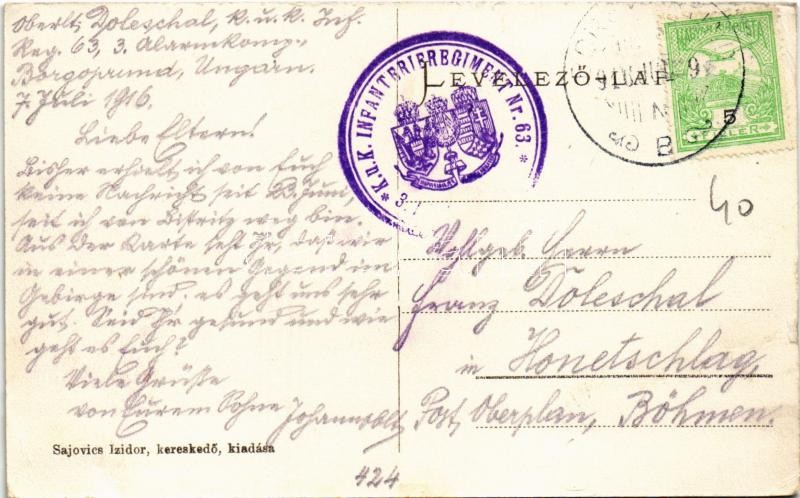 Oberlt. Doleschal, k. u. k. Inf.
Reg. 63, 3. Alarmkomp.,
Borgoprund, Ungarn.
7. Juli 1916.
Liebe Eltern!
Bisher erhielt ich von Euch
keine Nachricht seit 23. Juni,
seit ich von Bistritz weg bin.
Aus der Karte seht Ihr, daß wir
in einer schönen Gegend im
Gebirge sind. es geht uns sehr
gut. Seid Ihr gesund und wie
geht es Euch?
Viele Grüße
von Eurem Sohne Johann Oblt
Sajovics Izidor, kereskedő, kiadása
424
* K.u.K. INFANTERIEREGIMENT Nr. 63. *
LEVELEZŐ-LAP
MAGYAR POSTA
5
FILLÉR
40
Wohlgeb. Herrn
Franz Doleschal
in Honetschlag
Post Oberplan, Böhmen.